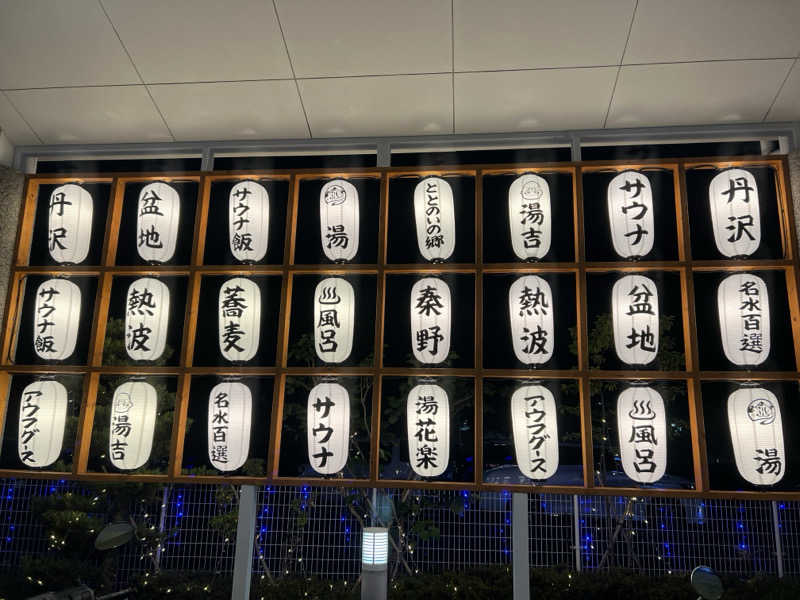 丹沢 盆地 サウナ飯 湯 ととのいの郷 湯吉 サウナ 丹沢
サウナ飯 熱波 蕎麦 風呂 秦野 熱波 盆地 名水百選
アウフグース 湯吉 名水百選 サウナ 湯花楽 アウフグース 風呂 湯